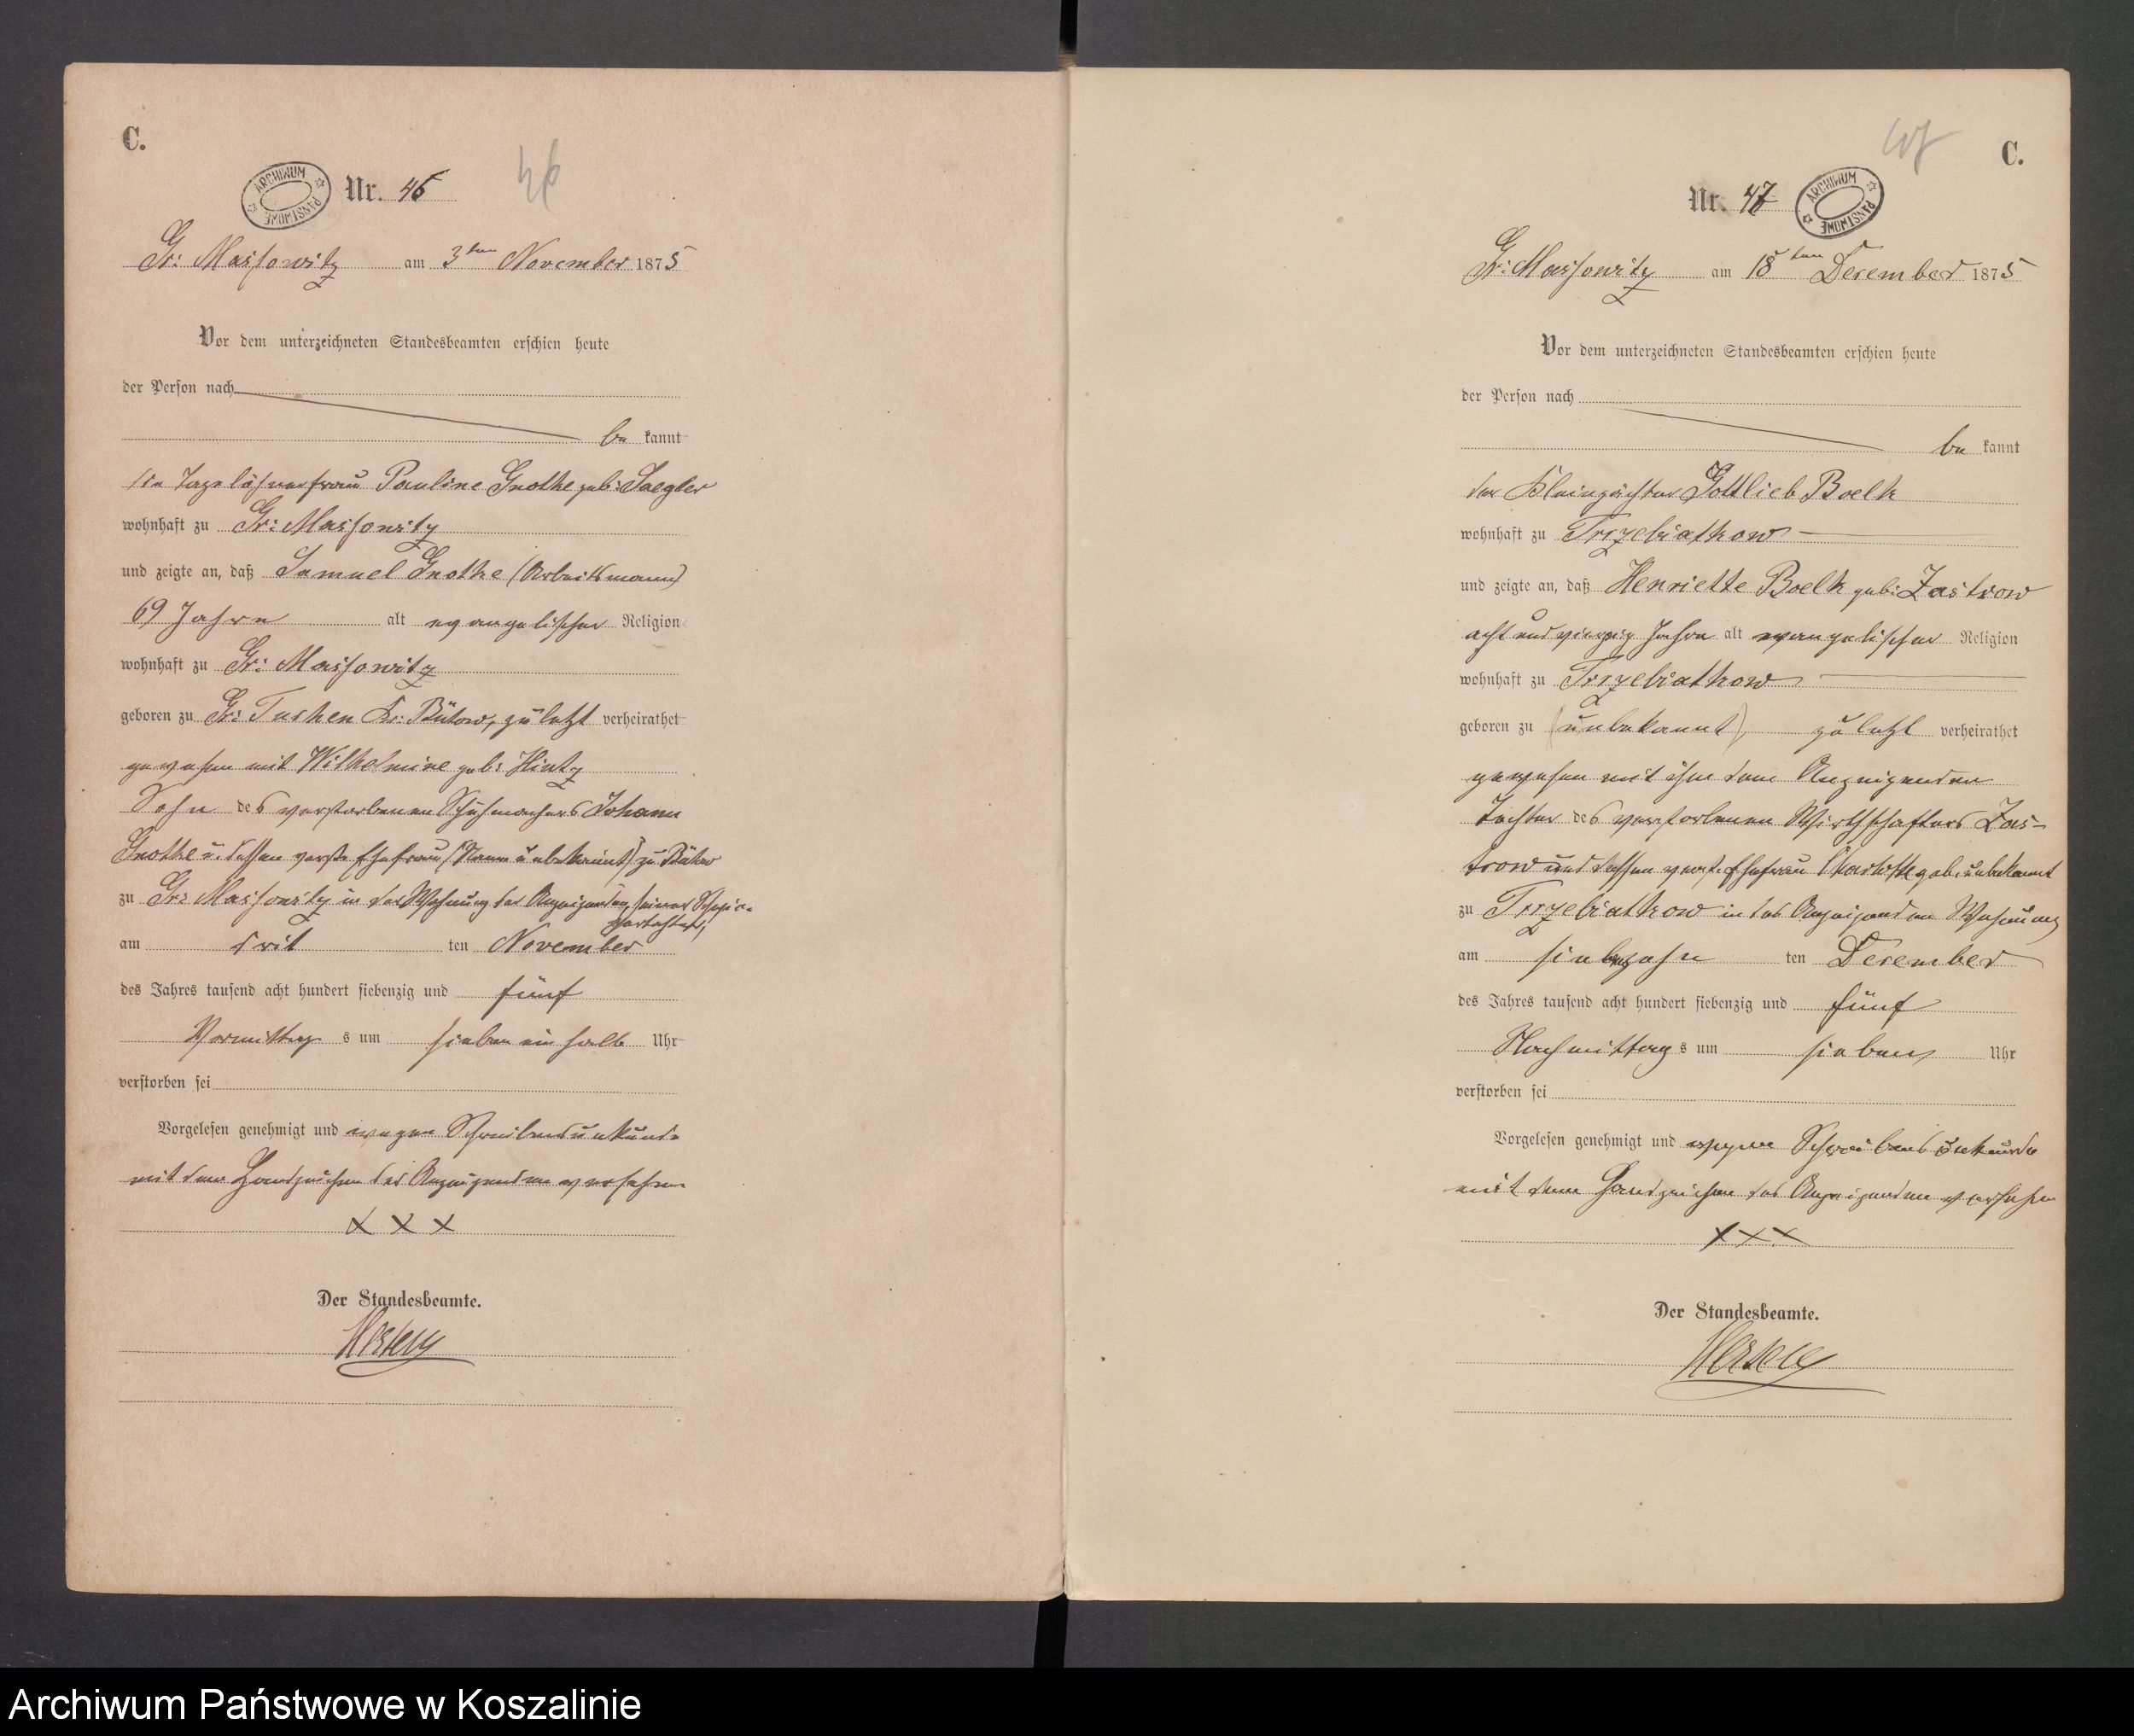 C.
ARCHIWUM PAŃSTWOWE
Nr. 46
46
Gr: Massowitz am 3ten November 1875
Vor dem unterzeichneten Standesbeamten erschien heute
der Person nach
be kannt
die Tagelöhnerfrau Pauline Gnothe geb:
wohnhaft zu Gr: Massowitz
und zeigte an, daß Samuel Gnothe (Arbeitsmann)
69 Jahre alt evangelischer Religion
wohnhaft zu Gr: Massowitz
geboren zu Gr: Tuchen Kr: Bütow, zuletzt verheirathet
gewesen mit Wilhelmine geb: Hintz
Sohn des verstorbenen Schuhmachers Johann
Gnothe u. dessen verst. Ehefrau (Name unbekannt) zu Bütow
zu Gr: Massowitz in der Wohnung der Anzeigenden, seiner Schwie-
gertochter,
am drit ten November
des Jahres tausend acht hundert siebenzig und fünf
Vormittag s um sieben ein halb Uhr
verstorben sei
Vorgelesen genehmigt und wegen Schreibensunkunde
mit dem Handzeichen der Anzeigenden versehen
X X X
Der Standesbeamte.
C.
Nr. 47
ARCHIWUM PAŃSTWOWE
Gr: Massowitz am 18ten December 1875
Vor dem unterzeichneten Standesbeamten erschien heute
der Person nach
be kannt
der Kleinpächter Gottlieb Boelk
wohnhaft zu Trzebiatkow
und zeigte an, daß Henriette Boelk geb: Zastrow
acht und vierzig Jahre alt evangelischer Religion
wohnhaft zu Trzebiatkow
geboren zu (unbekannt), zuletzt verheirathet
gewesen mit ihm dem Anzeigenden
Tochter des verstorbenen Wirthschafters Zas-
trow und dessen verst. Ehefrau Charlotte geb. unbekannt
zu Trzebiatkow in des Anzeigenden Wohnung
am siebenzehn ten December
des Jahres tausend acht hundert siebenzig und fünf
Nachmittag s um sieben Uhr
verstorben sei
Vorgelesen genehmigt und wegen Schreibensunkunde
mit dem Handzeichen des Anzeigenden versehen
X X X
Der Standesbeamte.
Archiwum Państwowe w Koszalinie